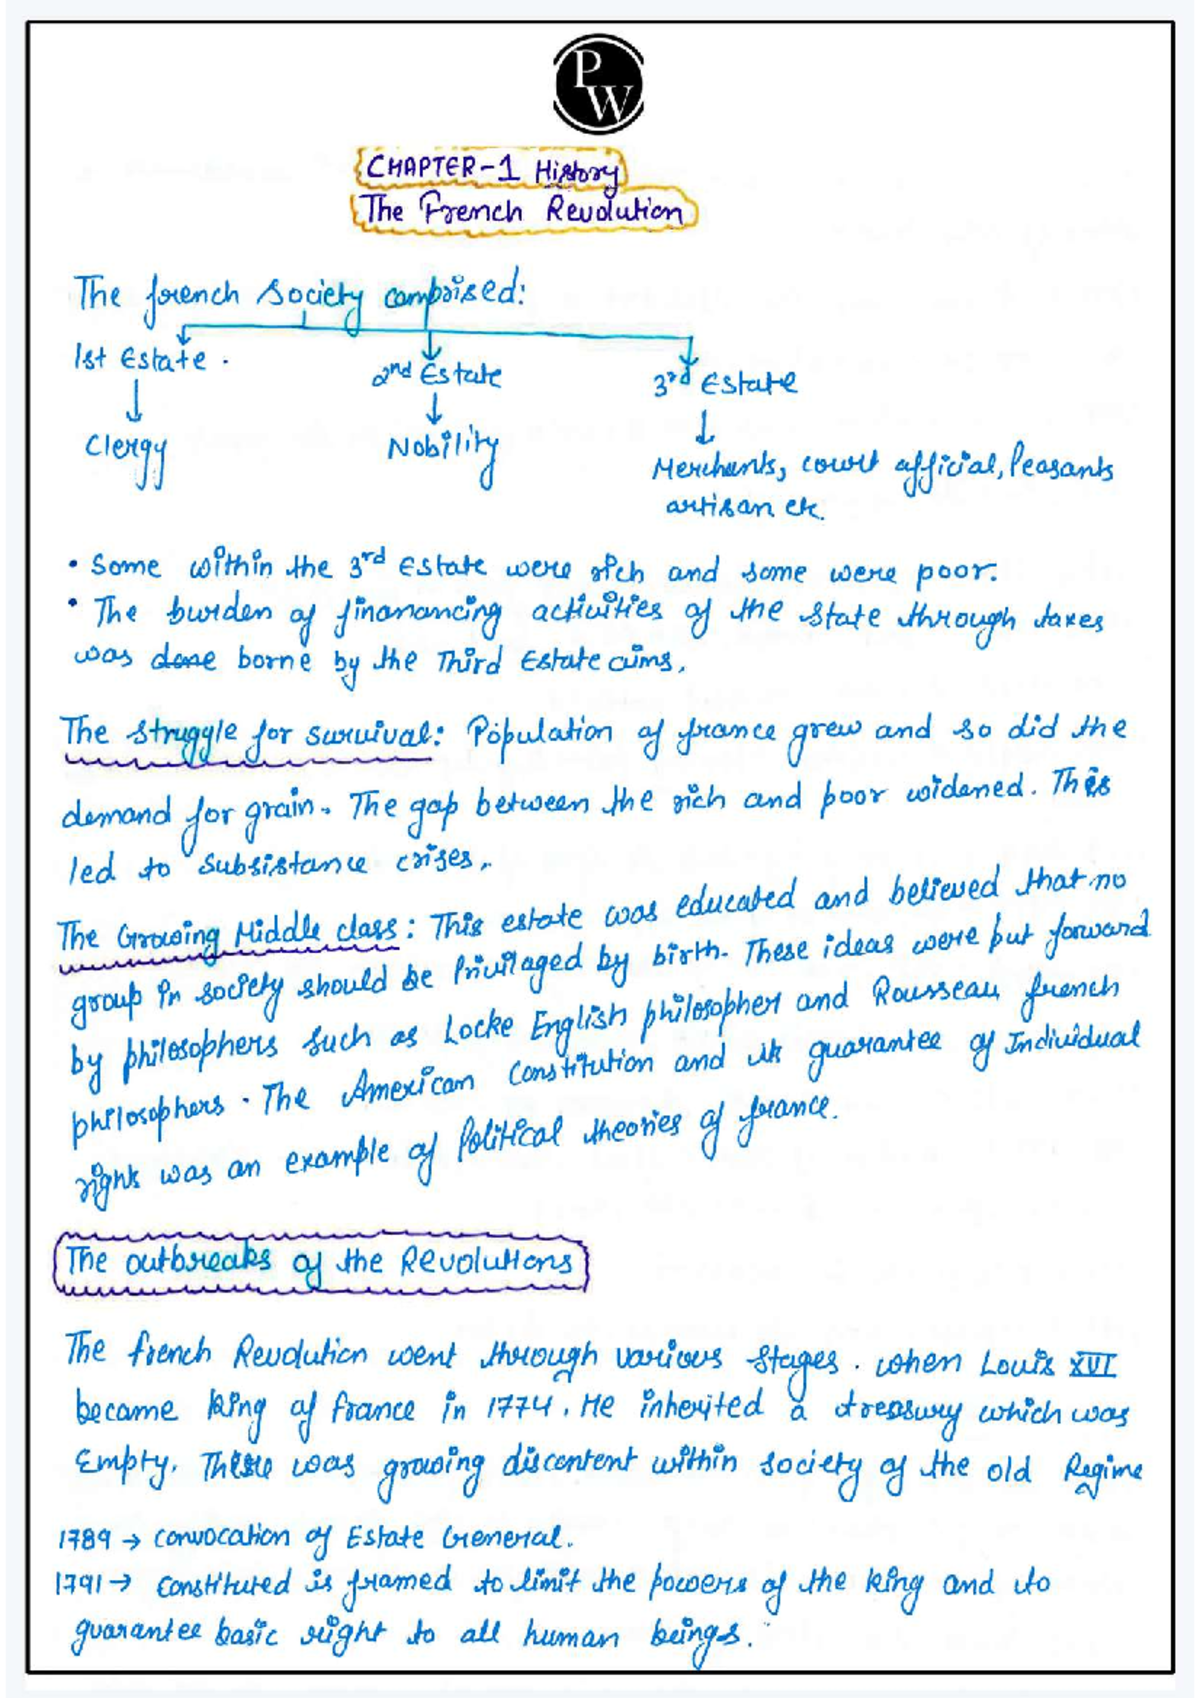 PW
CHAPTER-1 History
The French Revolution
The french society comprised:
1st Estate.
2nd Estate
3rd Estate
Clergy
Nobility
Merchants, court official, Peasants
artisan etc.
• Some within the 3rd Estate were rich and some were poor.
• The burden of finanancing activities of the state through taxes
was done borne by the Third Estate alms.
The struggle for survival: Population of france grew and so did the
demand for grain. The gap between the rich and poor widened. This
led to subsistance crises.
The Growing Middle class: This estate was educated and believed that no
group in society should be privilaged by birth. These ideas were put forward
by philosophers such as Locke English philosopher and Rousseau french
philosophers. The American constitution and its guarantee of Individual
rights was an example of political theories of france.
The outbreaks of the Revolutions
The french Revolution went through various stages. when Louis XVI
became king of france in 1774. He inherited a treasury which was
Empty. There was growing discontent within society of the old Regime
1789 → convocation of Estate General.
1791 → constituted is framed to limit the powers of the king and to
guarantee basic right to all human beings.